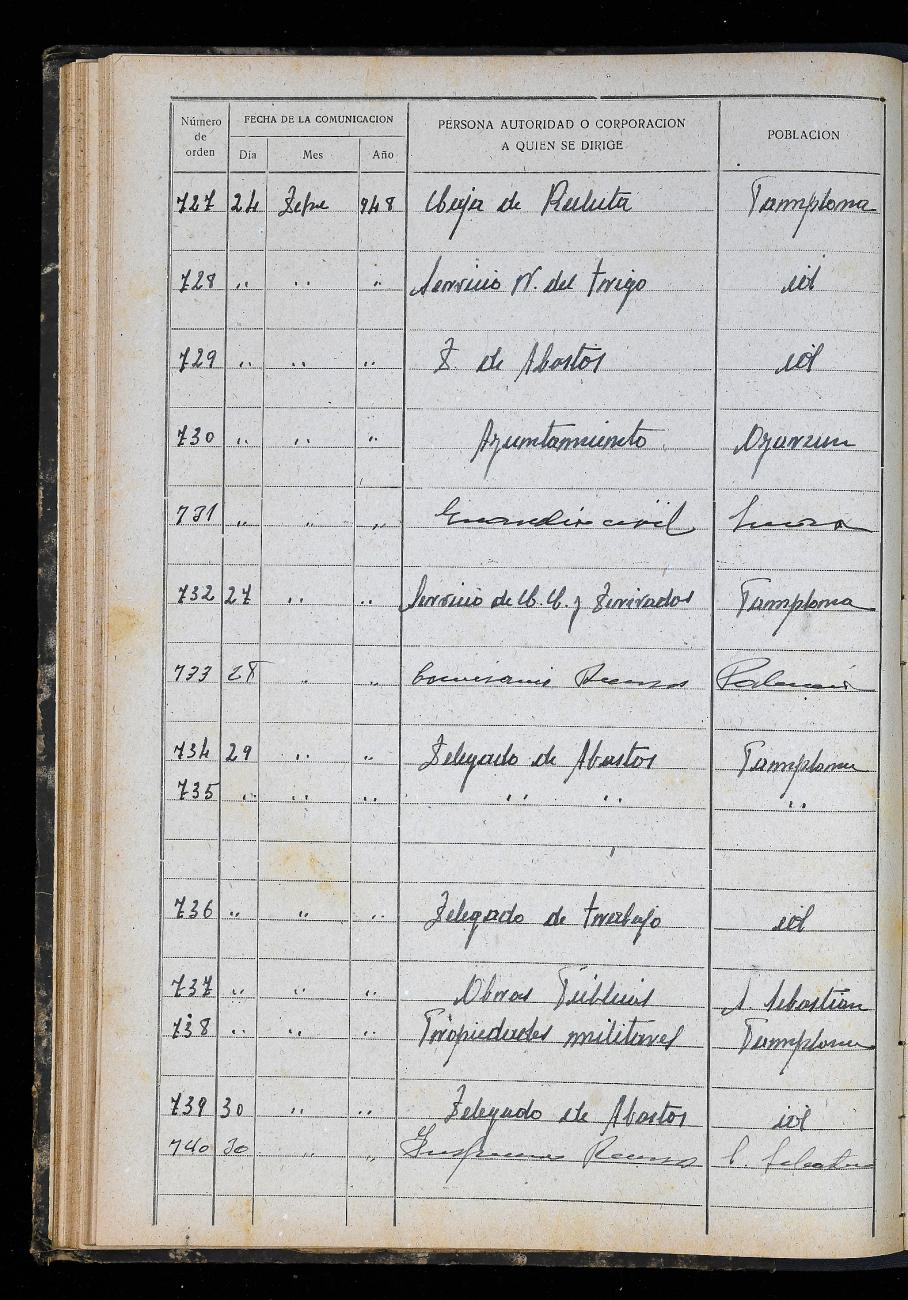 Número de orden FECHA DE LA COMUNICACION PERSONA AUTORIDAD O CORPORACION A QUIEN SE DIRIGE POBLACION
Día Mes Año
727 24 948 Caja de Recluta Pamplona
728 " " " Servicio N. del trigo id
729 " " " D. de Abastos id
730 " " " Ayuntamiento Oyarzun
731 " " " Guardia civil
732 27 " " Servicio de C. C. y Derivados Pamplona
733 28 " "
734 29 " " Delegado de Abastos Pamplona
735 " " " " " "
736 " " " Delegado de trabajo id
737 " " " Obras Públicas S. Sebastian
738 " " " Propiedades militares Pamplona
739 30 " " Delegado de Abastos id
740 30 " " S. Sebastian